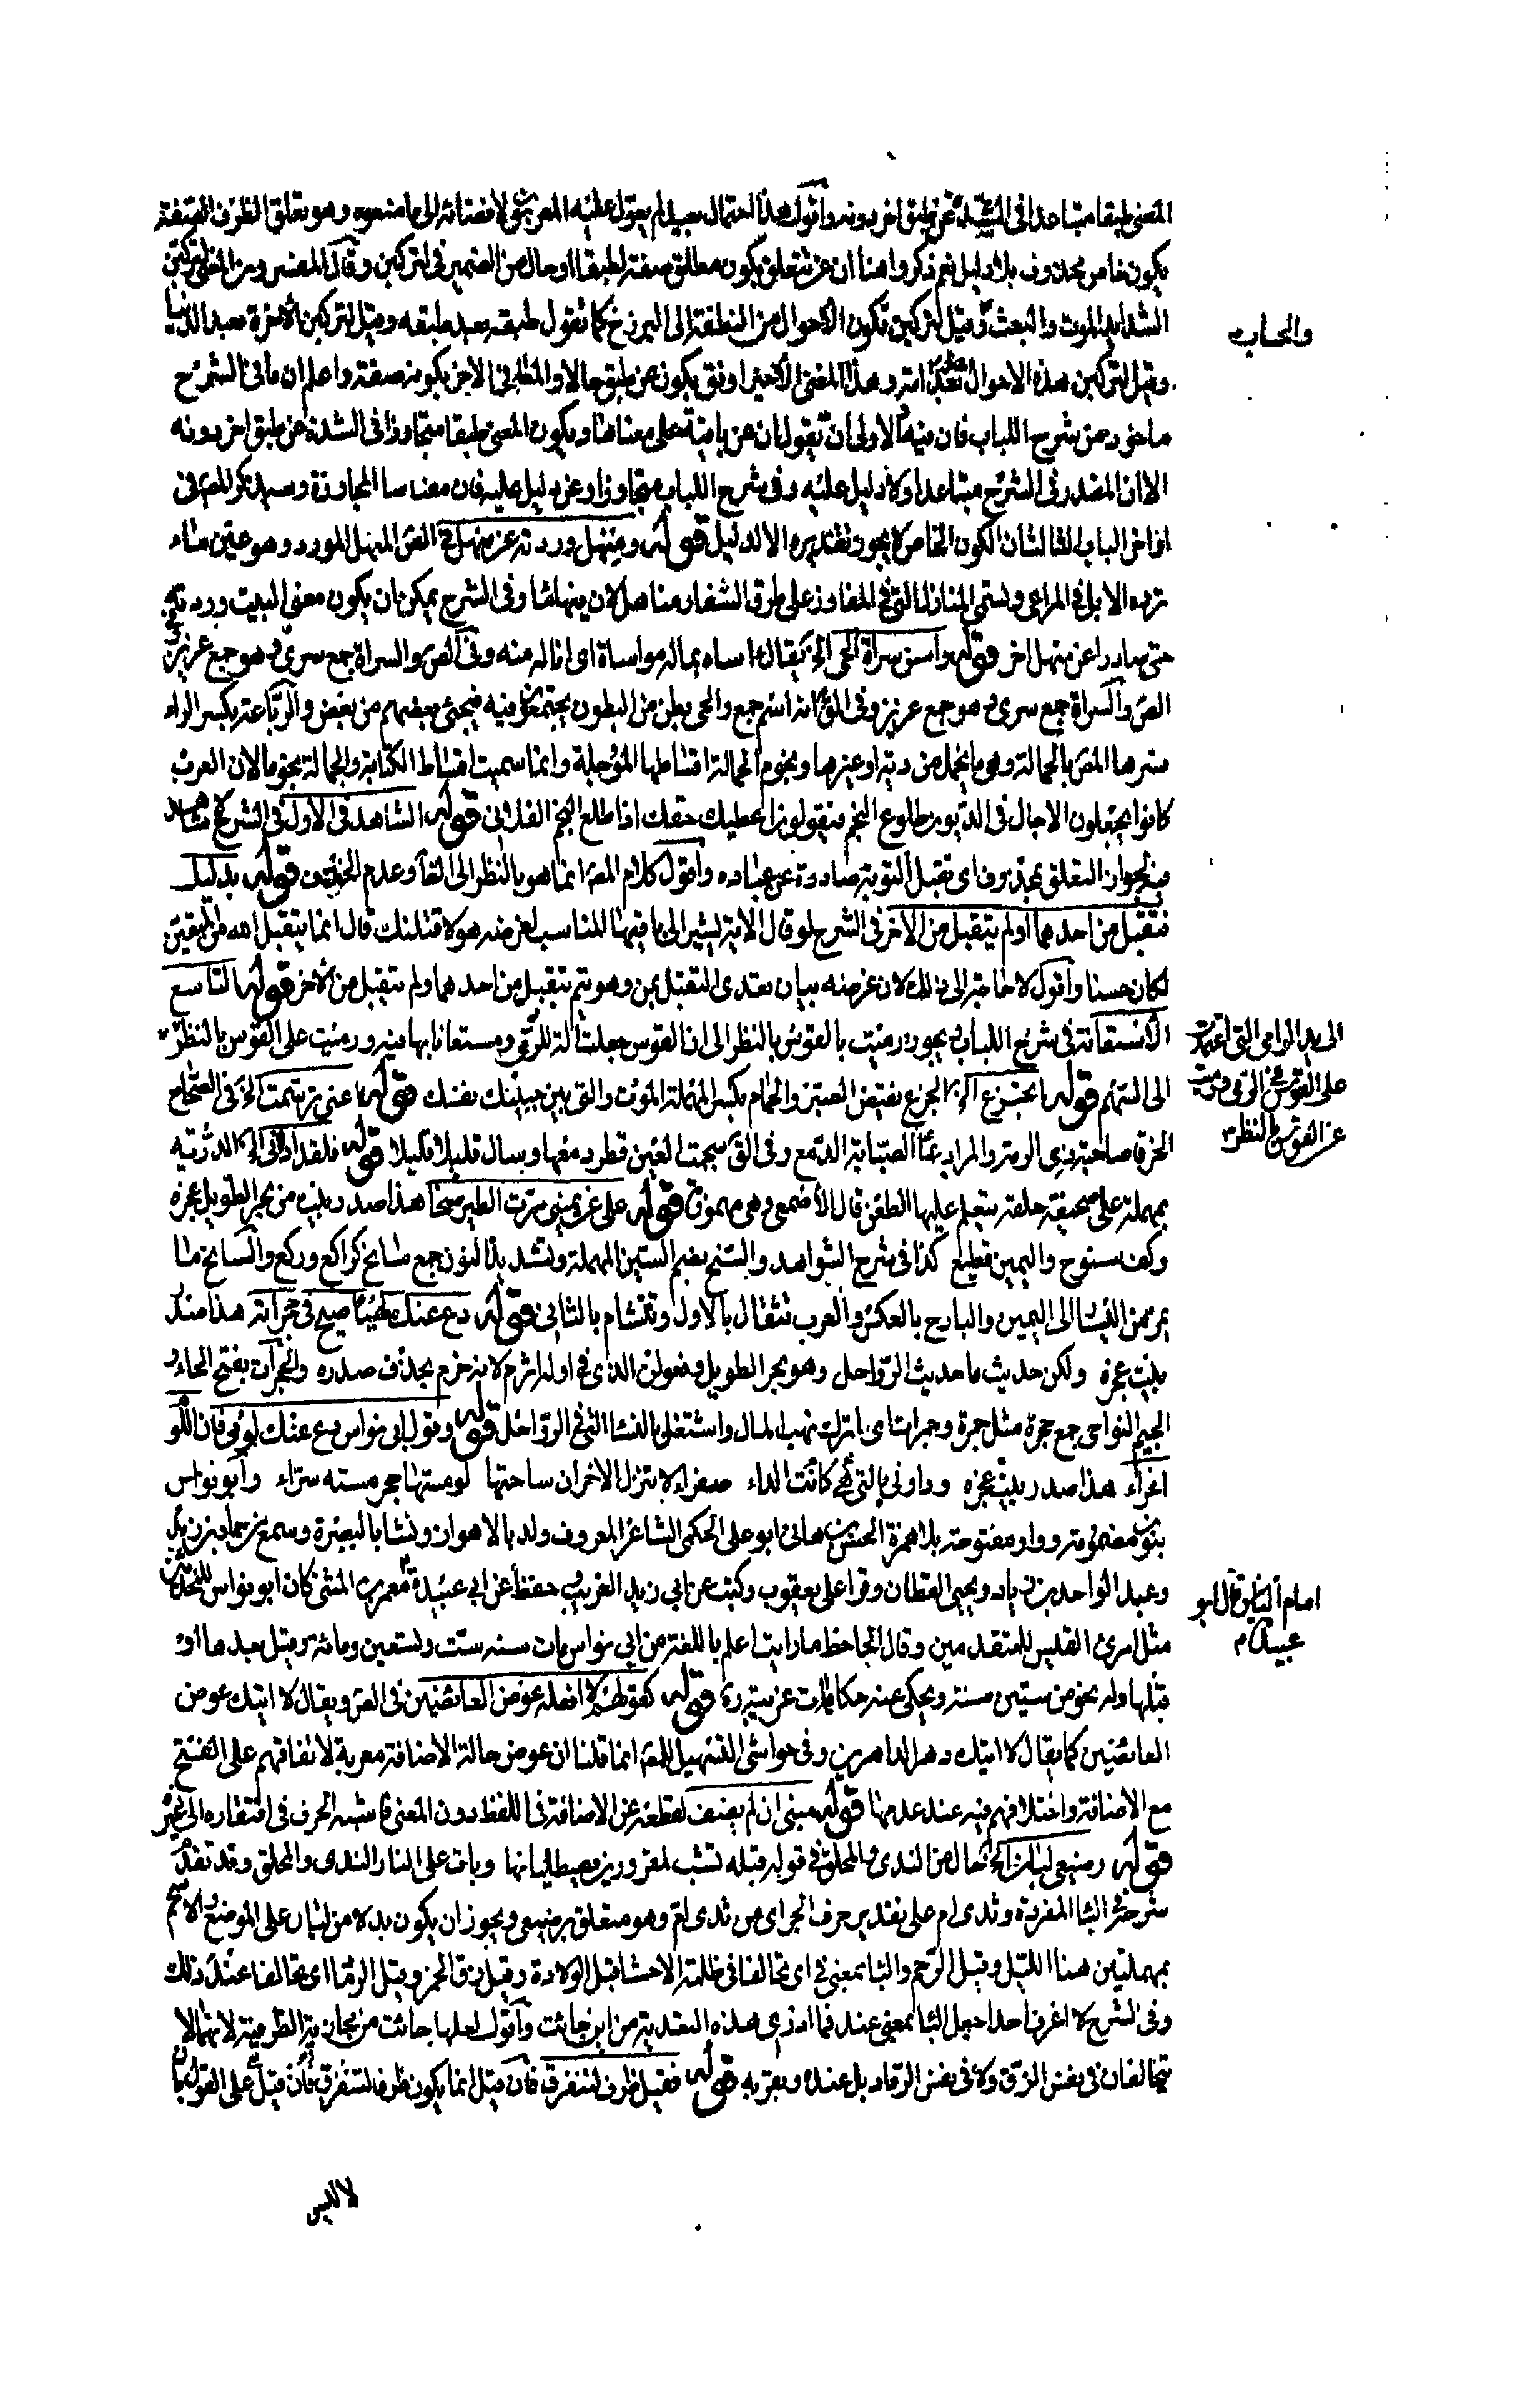 المعنى طبقا متباعدا في الشدة عن طبق اخر دونه واقول هذا احتمال بعيد لم يعول عليه المعربون لافضائه الى ما منعوه وهو تعلق الظرف الصفة
يكون خاص محذوف بلا دليل نعم ذكروا هنا ان عن تتعلق بكون مطلق صفة لطبقا او حال من الضمير في لتركبن وقال المفسرون المعنى لتركبن
الشدايد الموت والبعث وقيل لتركبن تكون الاحوال من النطفة الى البرزخ كما تقول طبقه بعد طبقه وقيل لتركبن الاخرة بعد الدنيا
والحساب
وقيل لتركبن هذه الاحوال امة بعد امة وهذا المعنى الاخير اوفق بكون عن طبق حالا والمعاني الاخر بكونه صفة واعلم ان ما في الشرح
ماخوذ من شرح اللباب فان فيه الاولى ان تقول ان عن باقية على معناها ويكون المعنى طبقا متجاوزا في الشدة عن طبق اخر دونه
الا ان المقدر في الشرح متباعدا ولا دليل عليه وفي شرح اللباب متجاوزا وعن دليل عليه فان معناها المجاوزة وسيذكر المص في
اواخر الباب الثالث ان الكون الخاص لا يجوز تقديره الا لدليل قوله ومنهل وردته عن منهل في الص المنهل المورد وهو عين ماء
ترده الابل في المراعي وتسمى المنازل التي في المفاوز على طرق السفار مناهل لان فيها ماء وفي الشرح يمكن ان يكون معنى البيت وردته
حتى صادرا عن منهل اخر قوله واسن سراة الحي الخ يقال اساه بماله مواساة اي اناله منه وفي الص والسراة جمع سري وهو جمع عزيز وفي
الص والسراة جمع سري وهو جمع عزيز وفي الق انه اسم جمع والحي بطن من البطون يجتمعون فيه فيجئ بعضهم من بعض والرباعة بكسر الراء
فسرها المص بالحمالة وهي ما يتحمل من دية او غيرها ونجوم الحمالة اقساطها المؤجلة وانما سميت اقساط الكتابة والحمالة نجوما لان العرب
كانوا يجعلون الاجال في الديون طلوع النجم فيقولون اعطيك حقك اذا طلع النجم الفلاني قوله الشاهد في الاول في الشرح لا شاهد
فيه لجواز التعلق بمحذوف اي تقبل التوبة صادرة عن عباده واقول كلام المص انما هو بالنظر الى الظ وعدم الحذف قوله بدليل
فتقبل من احدهما ولم يتقبل من الاخر في الشرح لو قال الاية ليشير الى باقيها المناسب لغرضه هو لاقتلنك قال انما يتقبل الله من المتقين
لكان حسنا واقول لا حاجة الى ذلك لان غرضه بيان تعدي التقبل بمن وهو يتم بتقبل من احدهما ولم يتقبل من الاخر قوله التاسع
الاستعانة في شرح اللباب يجوز رميت بالقوس بالنظر الى ان القوس جعلت الة للرمي ومستعانا بها فيه ورميت على القوس بالنظر
الى يد الرامي التي اعتمدت
على القوس في الرمي ورميت
عن القوس بالنظر
الى السهم قوله اتجزع الخ الجزع نقيض الصبر والحمام بكسر المهملة الموت والتي بين جنبيك نفسك قوله اعن ترسمت الخ في الصحاح
الخرقا صاحبة ذي الرمة والمراد بماء الصبابة الدمع وفي الق سجمت العين قطر دمعها وسال قليلا قليلا قوله فلقد اراني الخ الدرئه
بمهملة على صحيفة حلقة يتعلم عليها الطعن قال الاصمعي وهي مهموزة قوله على عن يميني مرت الطير سنحا هذا صدر بيت من بحر الطويل عجزه
وكيف سنوح واليمين قطيع كذا في شرح الشواهد والسنح بضم السين المهملة وتشديد النون جمع سانح كراكع وركع والسانح ما
يمر من اليسار الى اليمين والبارح بالعكس والعرب تتفال بالاول وتتشام بالثاني قوله دع عنك نهبا صيح في حجراته هذا صدر
بيت عجزه ولكن حديث ما حديث الرواحل وهو بحر الطويل وفعولن الذي في اوله اثرم لانه خرم بحذف صدره والحجرات بفتح الحاء و
الجيم النواحي جمع حجرة مثل جمرة وجمرات اي اترك نهب المال واشتغل بالنسا التي في الرواحل قوله وقول ابي نواس دع عنك لومي فان اللو
اغراء هذا صدر بيت عجزه وداوني بالتي هي كانت الداء صفراء لا تنزل الاحزان ساحتها لو مستها حجر مسته سراء وابو نواس
بنون مضمومة وواو مفتوحة بلا همزة الحسن بن هانئ ابو علي الحكمي الشاعر المعروف ولد بالاهواز ونشا بالبصرة وسمع من حماد بن زيد
وعبد الواحد بن زياد ويحيى القطان وقرا على يعقوب وكتب عن ابي زيد الغريب وحفظ عن ابي عبيدة معمر بن المثنى كان ابو نواس للمحدثين
امام الناس قال ابو
عبيدة م
مثل امرئ القيس للمتقدمين وقال الجاحظ ما رايت اعلم باللغة من ابي نواس مات سنه ست وتسعين ومائة وقيل بعدها او
قبلها وله نحو من ستين سنة ويحكى عنه حكايات عن سيره قوله كقولهم لا افعله عوض العائضين في الص ويقال لا اتيك عوض
العائضين كما يقال لا اتيك دهر الداهرين وفي حواشي التسهيل للمص انما قلنا ان عوض حالة الاضافة معربة لاتفاقهم على الفتح
مع الاضافة واختلافهم فيه عند عدمها قوله مبني ان لم يضف لقطعه عن الاضافة في اللفظ دون المعنى فاشبه الحرف في افتقاره الى غيره
قوله رضيعي لبان الخ حال من الندى والمحلق في قوله قبله تشب لمقرورين يصطليانها وبات على النار الندى والمحلق وقد تقدم
شرحه في البا المفردة وثدي ام على تقدير حرف الجر اي من ثدي ام وهو متعلق برضيعي ويجوز ان يكون بدلا من لبان على الموضع والاسحم
بمهملتين هنا الليل وقيل الرحم والبا بمعنى في اي تحالفا في ظلمة الاحشا قبل الولادة وقيل زق الخمر وقيل الرماد اي تحالفا عند ذلك
وفي الشرح لا اعرف احدا جعل البا بمعنى عند فما ادري هذه التعدية من اين جائت واقول لعلها جائت من مجازية الظرفية لانهما لا
يتحالفان في نفس الزق ولا في نفس الرماد بل عنده وبقربه قوله فقيل ظرف لنتفرق فان قيل انما يكون ظرفا لنتفرق فان قيل على القول بان
لا لليس